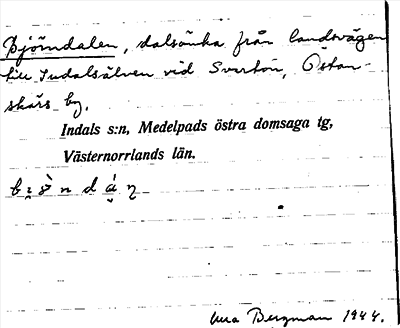 Björndalen, dalsänka från landsvägen
till Indalsälven vid Svartön, Östan-
skärs by.
Indals s:n, Medelpads östra domsaga tg,
Västernorrlands län.
Bergman 1944.